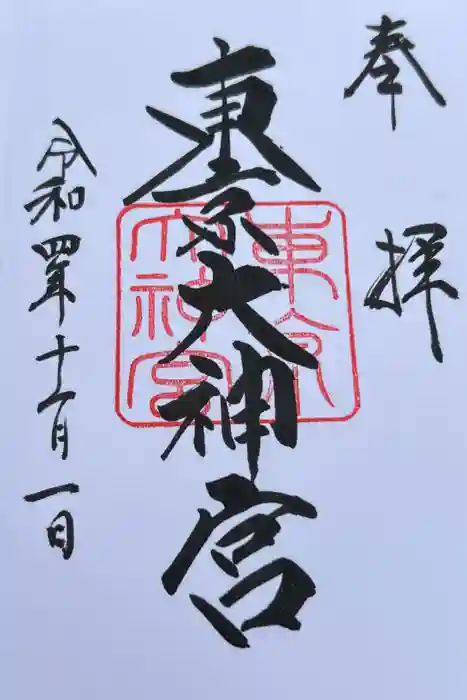 奉拝
東京大神宮
東京
大神宮
令和四年十二月一日